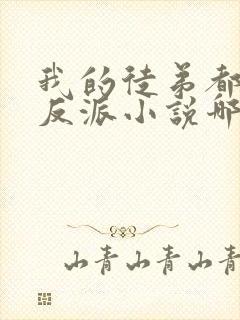 我的徒弟都
反派小説哪
山青山青山青